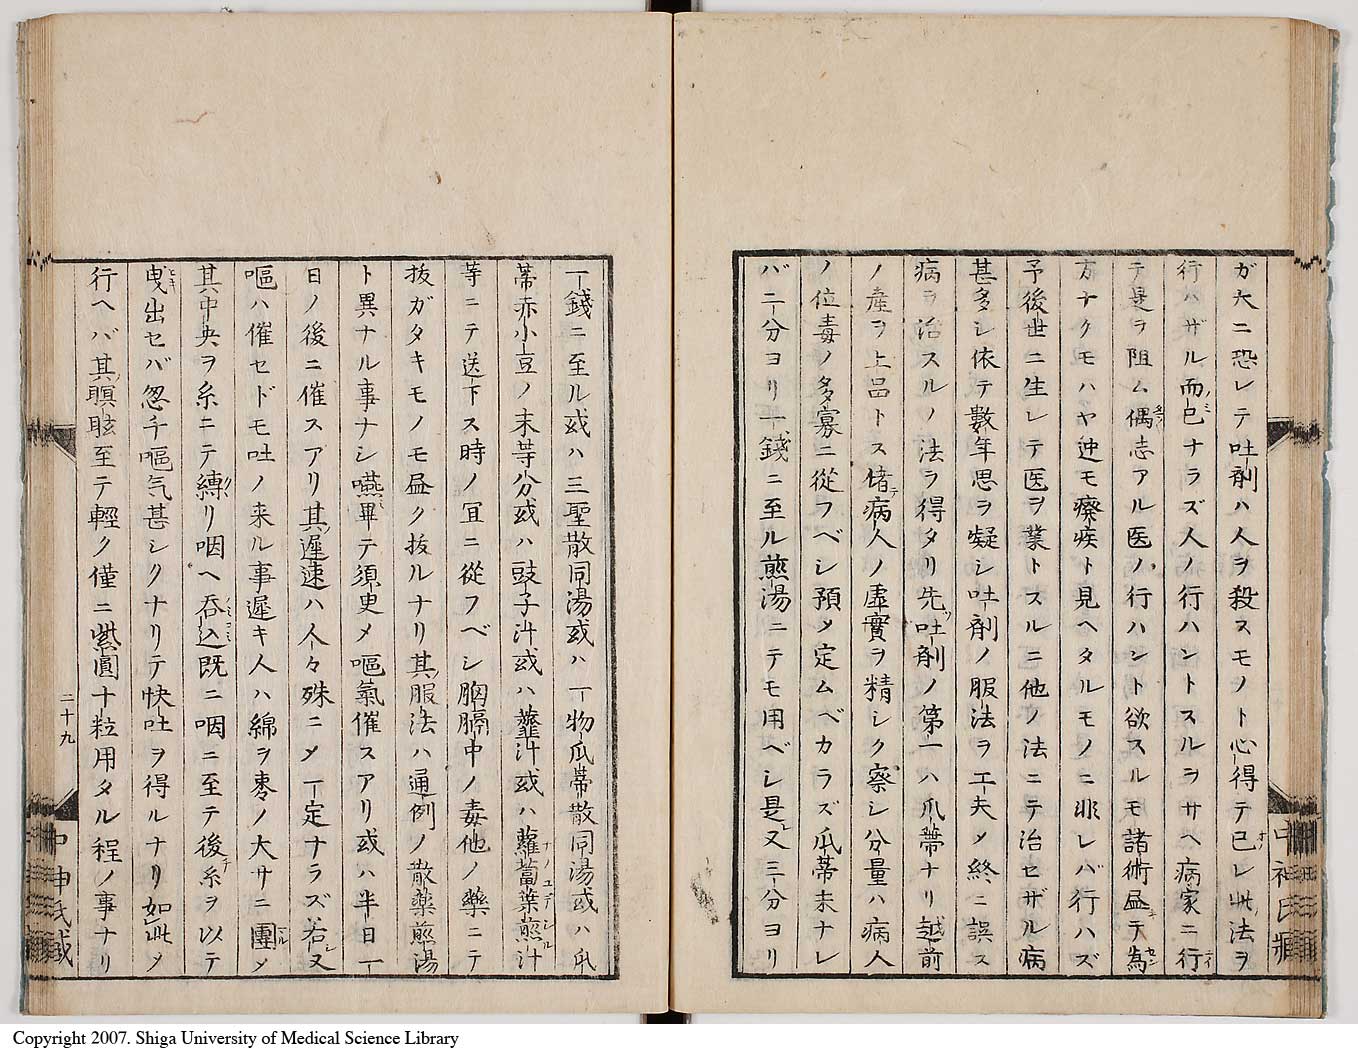 ガ大ニ恐レテ吐剤ハ人ヲ殺スモノト心得テ已レ此法ヲ
行ハザル而已ナラズ人ノ行ハントスルヲサヘ病家ニ行
テ是ヲ阻ム偶志アル医ノ行ハント欲スルモ諸術盡テ為
方ナクモハヤ迚モ療疾ト見ヘタルモノニ非レバ行ハズ
予後世ニ生レテ医ヲ業トスルニ他ノ法ニテ治セザル病
甚多シ依テ數年思ヲ凝シ吐剤ノ服法ヲ工夫メ終ニ誤ス
病ヲ治スルノ法ヲ得タリ先吐剤ノ第一ハ瓜蔕ナリ越前
ノ産ヲ上品トス偖病人ノ虚實ヲ精シク察シ分量ハ病人
ノ位毒ノ多寡ニ從フベシ預メ定ムベカラズ瓜蔕末ナレ
バ二分ヨリ一錢ニ至ル煎湯ニテモ用ベシ是又三分ヨリ
一錢ニ至ル或ハ三聖散同湯或ハ一物瓜蔕散同湯或ハ瓜
蔕赤小豆ノ末等分或ハ豉子汁或ハ虀汁或ハ蘿蔔葉煎汁
等ニテ送下ス時ノ宜ニ從フベシ胸膈中ノ毒他ノ藥ニテ
抜ガタキモノモ盡ク抜ルナリ其服法ハ通例ノ散藥煎湯
ト異ナル事ナシ嚥畢テ須臾メ嘔氣催スアリ或ハ半日一
日ノ後ニ催スアリ其遅速ハ人々殊ニメ一定ナラズ若又
嘔ハ催セドモ吐ノ来ル事遅キ人ハ綿ヲ棗ノ大サニ團メ
其中央ヲ糸ニテ縛リ咽ヘ呑込既ニ咽ニ至テ後糸ヲ以テ
曳出セバ忽チ嘔気甚シクナリテ快吐ヲ得ルナリ如此メ
行ヘバ其瞑眩至テ輕ク僅ニ紫圓十粒用タル程ノ事ナリ
二十九
中神氏蔵
Copyright 2007. Shiga University of Medical Science Library